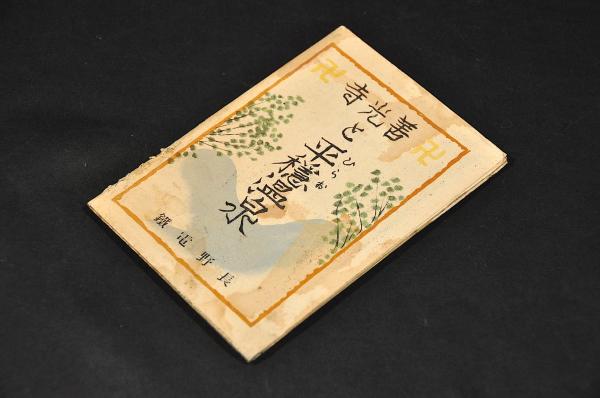 卍 卍
善光寺
と
平穩温泉
ひらお
長野電鐵